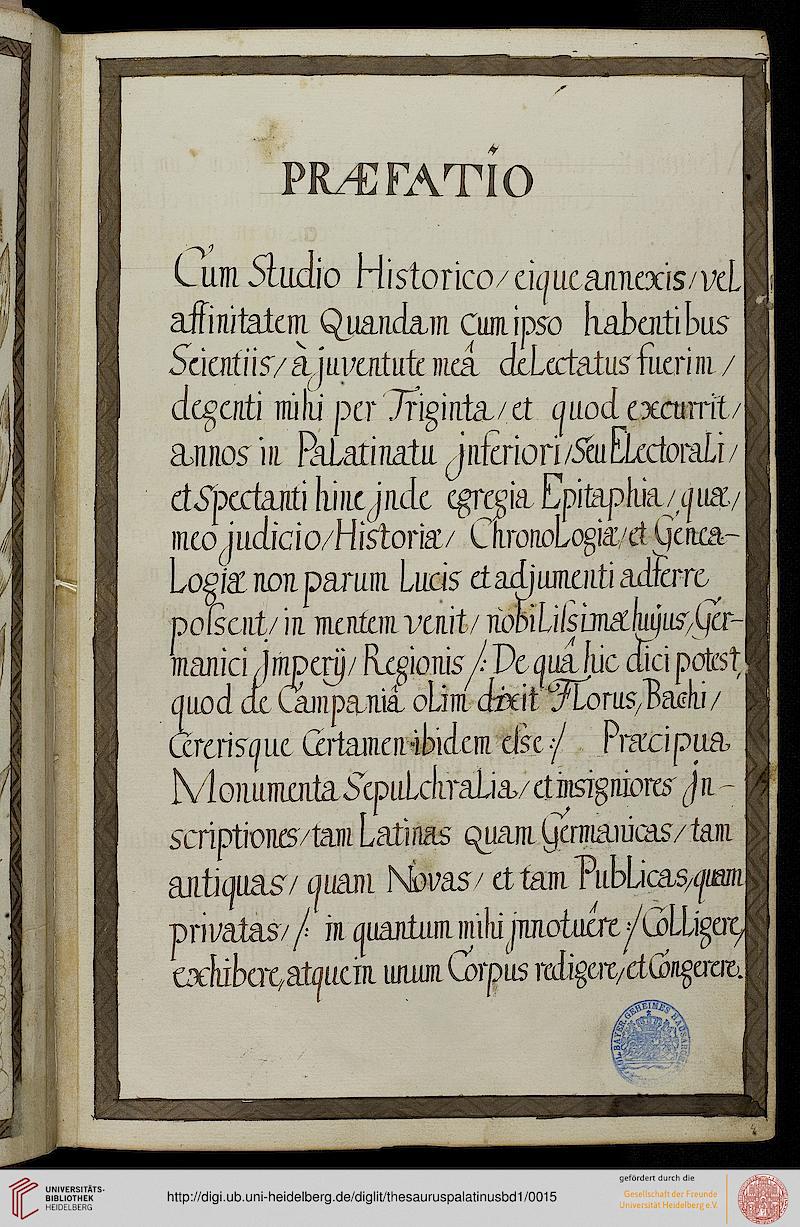 PRÆFATIO
Cum Studio Historico/ eique annexis/ vel
affinitatem Quandam cum ipso habentibus
Scientiis/ à juventute meâ delectatus fuerim /
degenti mihi per Triginta/ et quod excurrit/
annos in Palatinatu jnferiori/ Seu Electorali/
et Spectanti hinc jnde egregia Epitaphia/ quæ/
meo judicio/ Historiæ/ Chronologiæ/ et Genea-
Logiæ non parum Lucis et adjumenti adferre
possent/ in mentem venit/ nobilissimæ hujus/ Ger-
manici jmperij/ Regionis /: De quâ hic dici potest,
quod de Campaniâ olim dixit Florus, Bachi/
Cererisque Certamen ibidem esse :/ Præcipua
Monumenta Sepulchralia/ et insigniores jn-
scriptiones/ tam Latinas quam Germanicas/ tam
antiquas/ quam Novas/ et tam Publicas, quam
privatas/ /: in quantum mihi jnnotuêre :/ Colligere,
exhibere, atque in unum Corpus redigere/ et Congerere.
UNIVERSITÄTS-
BIBLIOTHEK
HEIDELBERG
http://digi.ub.uni-heidelberg.de/diglit/thesauruspalatinusbd1/0015
gefördert durch die
Gesellschaft der Freunde
Universität Heidelberg e.V.